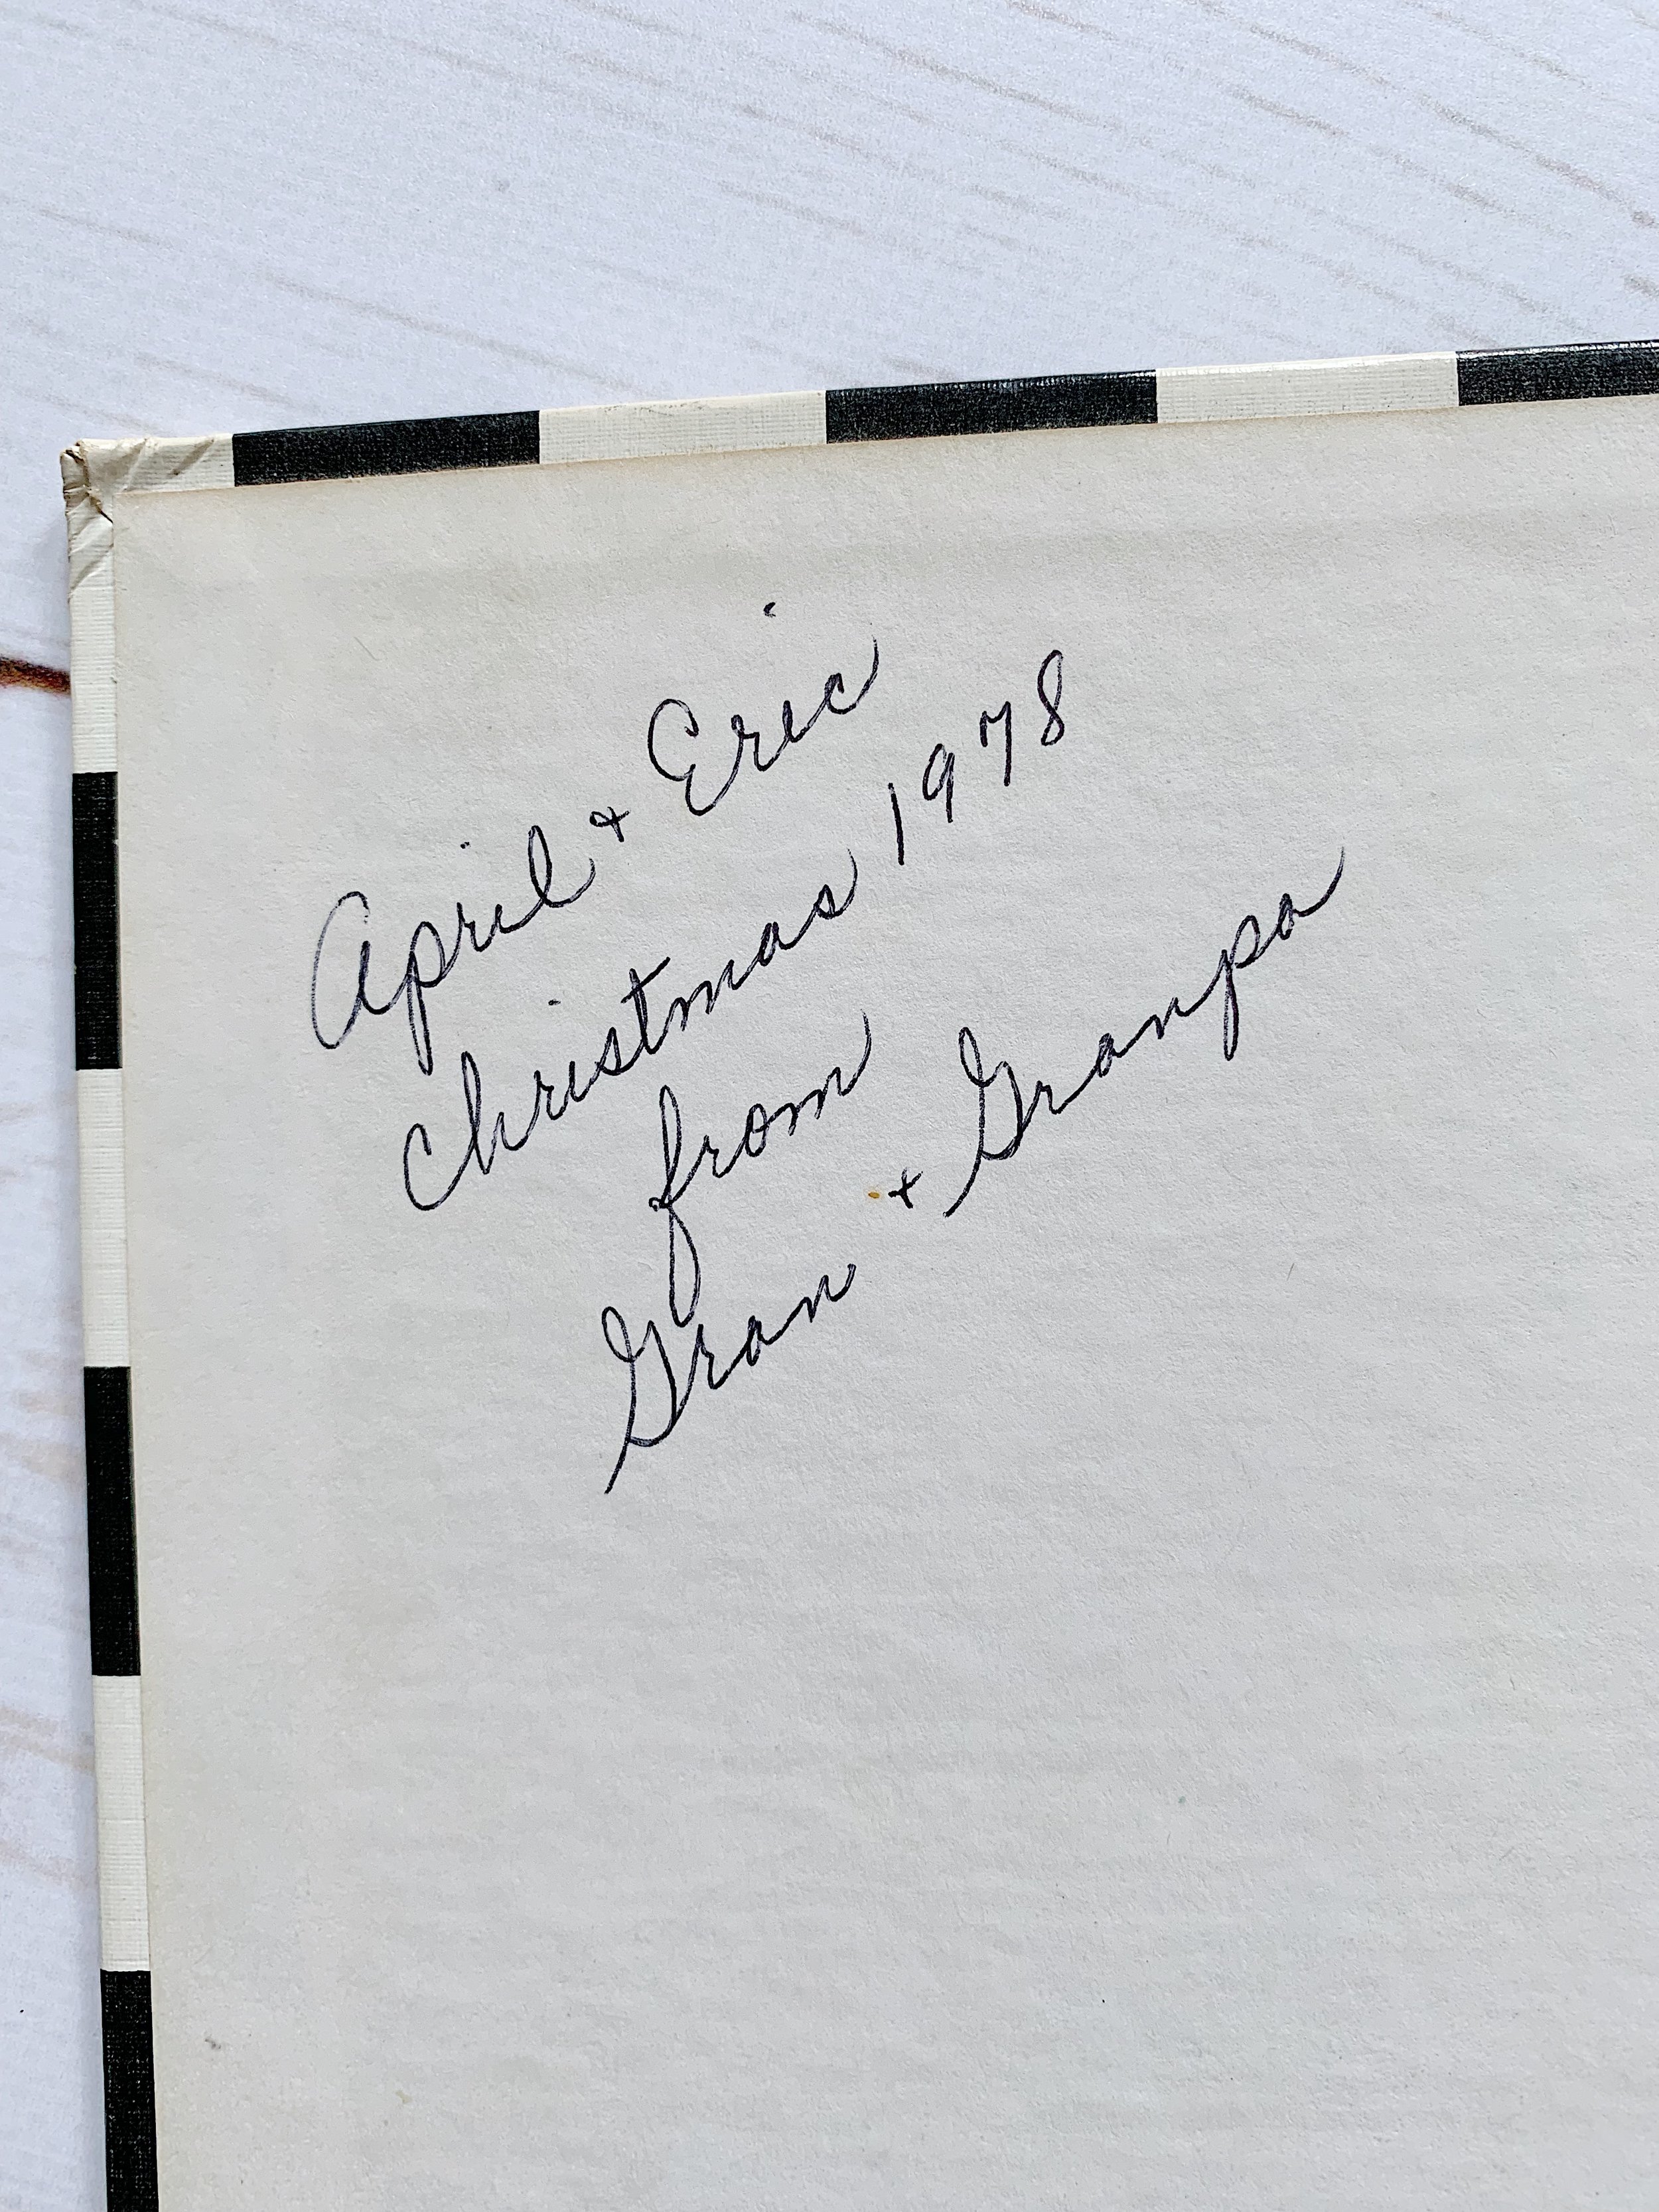 April + Eric
Christmas 1978
from
Gran + Granpa